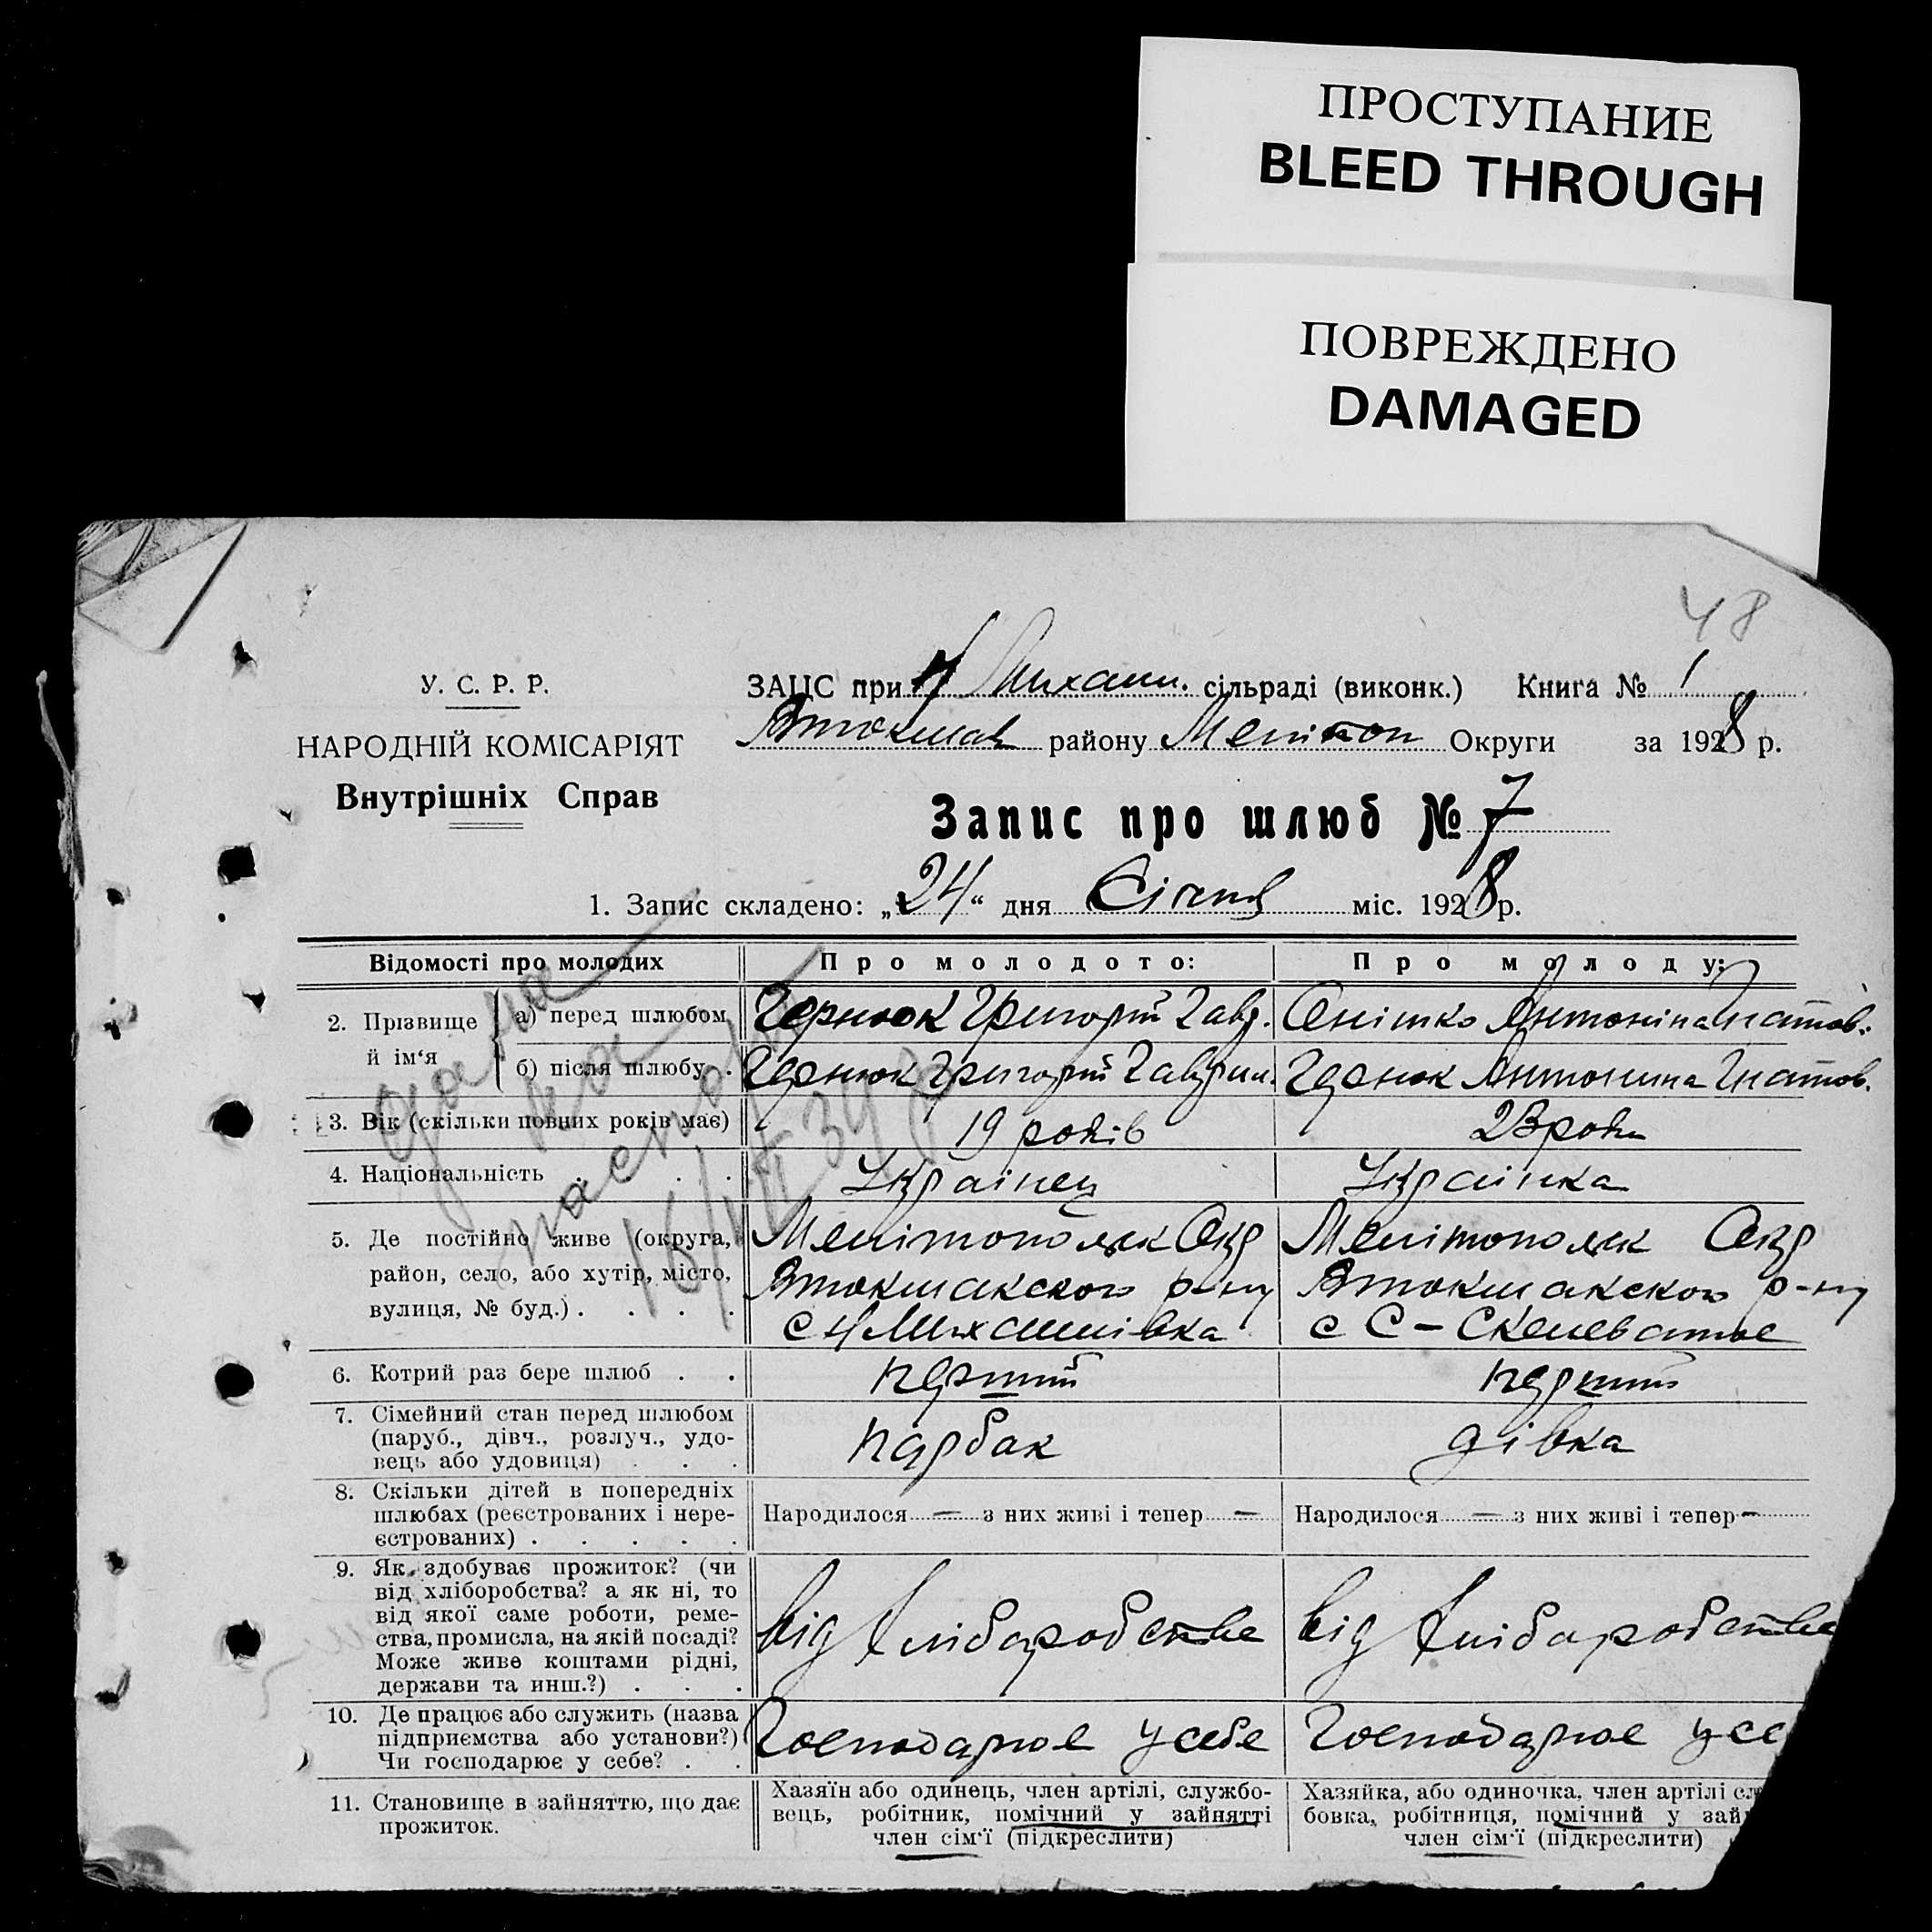 ПРОСТУПАНИЕ
BLEED THROUGH
ПОВРЕЖДЕНО
DAMAGED
48
У. С. Р. Р.
НАРОДНІЙ КОМІСАРІЯТ
Внутрішніх Справ
ЗАЦС при Н Михайл. сільраді (виконк.) Книга № 1
Втокмак району Мелітоп Округи за 1928 р.
Запис про шлюб № 7
1. Запис складено: „24“ дня Січня міс. 1928 р.
Відомості про молодих
Про молодого:
Про молоду:
2. Прізвище й ім‘я
а) перед шлюбом
Чернюк Григорій Гавр.
Онішко Антоніна Игнатов.
б) після шлюбу .
Чернюк Григорій Гаврил.
Чернюк Антонина Игнатов.
3. Вік (скільки повних років має)
19 років
23 роки
4. Національність . . .
Українец
Українка
5. Де постійно живе (округа,
район, село, або хутір, місто,
вулиця, № буд.) . . . .
Мелітопольск Окр
Втокмакского р-ну
с Н Михайлівка
Мелітопольск Окр
Втокмакского р-ну
с С-Скелеватое
6. Котрий раз бере шлюб . .
перший
перший
7. Сімейний стан перед шлюбом
(паруб., дівч., розлуч., удо-
вець або удовиця) . . .
парбак
дівка
8. Скільки дітей в попередніх
шлюбах (реєстрованих і нере-
єстрованих) . . . . .
Народилося — з них живі і тепер —
Народилося — з них живі і тепер —
9. Як здобуває прожиток? (чи
від хліборобства? а як ні, то
від якої саме роботи, реме-
ства, промисла, на якій посаді?
Може живе коштами рідні,
держави та инш.?) . . .
від хлібаробства
від хлібаробства
10. Де працює або служить (назва
підприємства або установи?)
Чи господарює у себе? . .
Господарює у себе
Господарює у се
11. Становище в зайняттю, що дає
прожиток.
Хазяїн або одинець, член артілі, службо-
вець, робітник, помічний у зайнятті
член сім‘ї (підкреслити)
Хазяйка, або одиночка, член артілі сл
бовка, робітниця, помічний у зай
член сім‘ї (підкреслити)
дана
на
паспорт